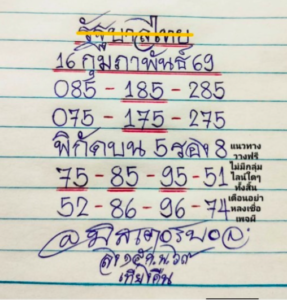 รัฐบาลไทย
16 กุมภาพันธ์ 69
085 - 185 - 285
075 - 175 - 275
พิกัดบน 5 รอง 8
75 - 85 - 95 - 51
52 - 86 - 96 - 74
แนวทาง
วางฟรี
ไม่มีกลุ่ม
ไลน์ใดๆ
ทั้งสิ้น
เตือนอย่า
หลงเชื่อ
เพจผี
เที่ยงคืน